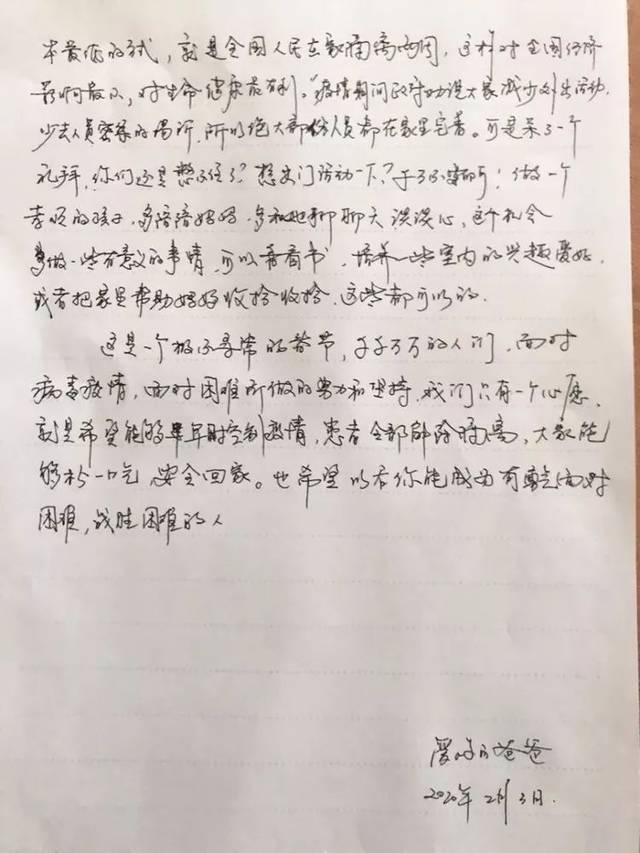 本最低的方式，就是全国人民在家隔离两周，这样对全国经济
影响最小，对生命健康最有利。"疫情期间政府劝说大家减少外出活动，
少去人员密集的场所，所以绝大部份人员都在家里宅着。可是呆了一个
礼拜，你们还是憋不住了？想出门活动一下？千万不要啊！做一个
孝顺的孩子，多陪陪妈妈，多和她聊聊天谈谈心，这个机会
多做一些有意义的事情，可以看看书，培养一些室内的兴趣爱好，
或者把家里帮助妈妈收拾收拾，这些都可以的。
这是一个极不寻常的春节，千千万万的人们，面对
病毒疫情，面对困难所做的努力和坚持，我们只有一个心愿，
就是希望能够早早时控制疫情，患者全部解除隔离，大家能
够松一口气，安全回家。也希望以后你能成为有勇气面对
困难，战胜困难的人
爱你的爸爸
2020年2月3日.